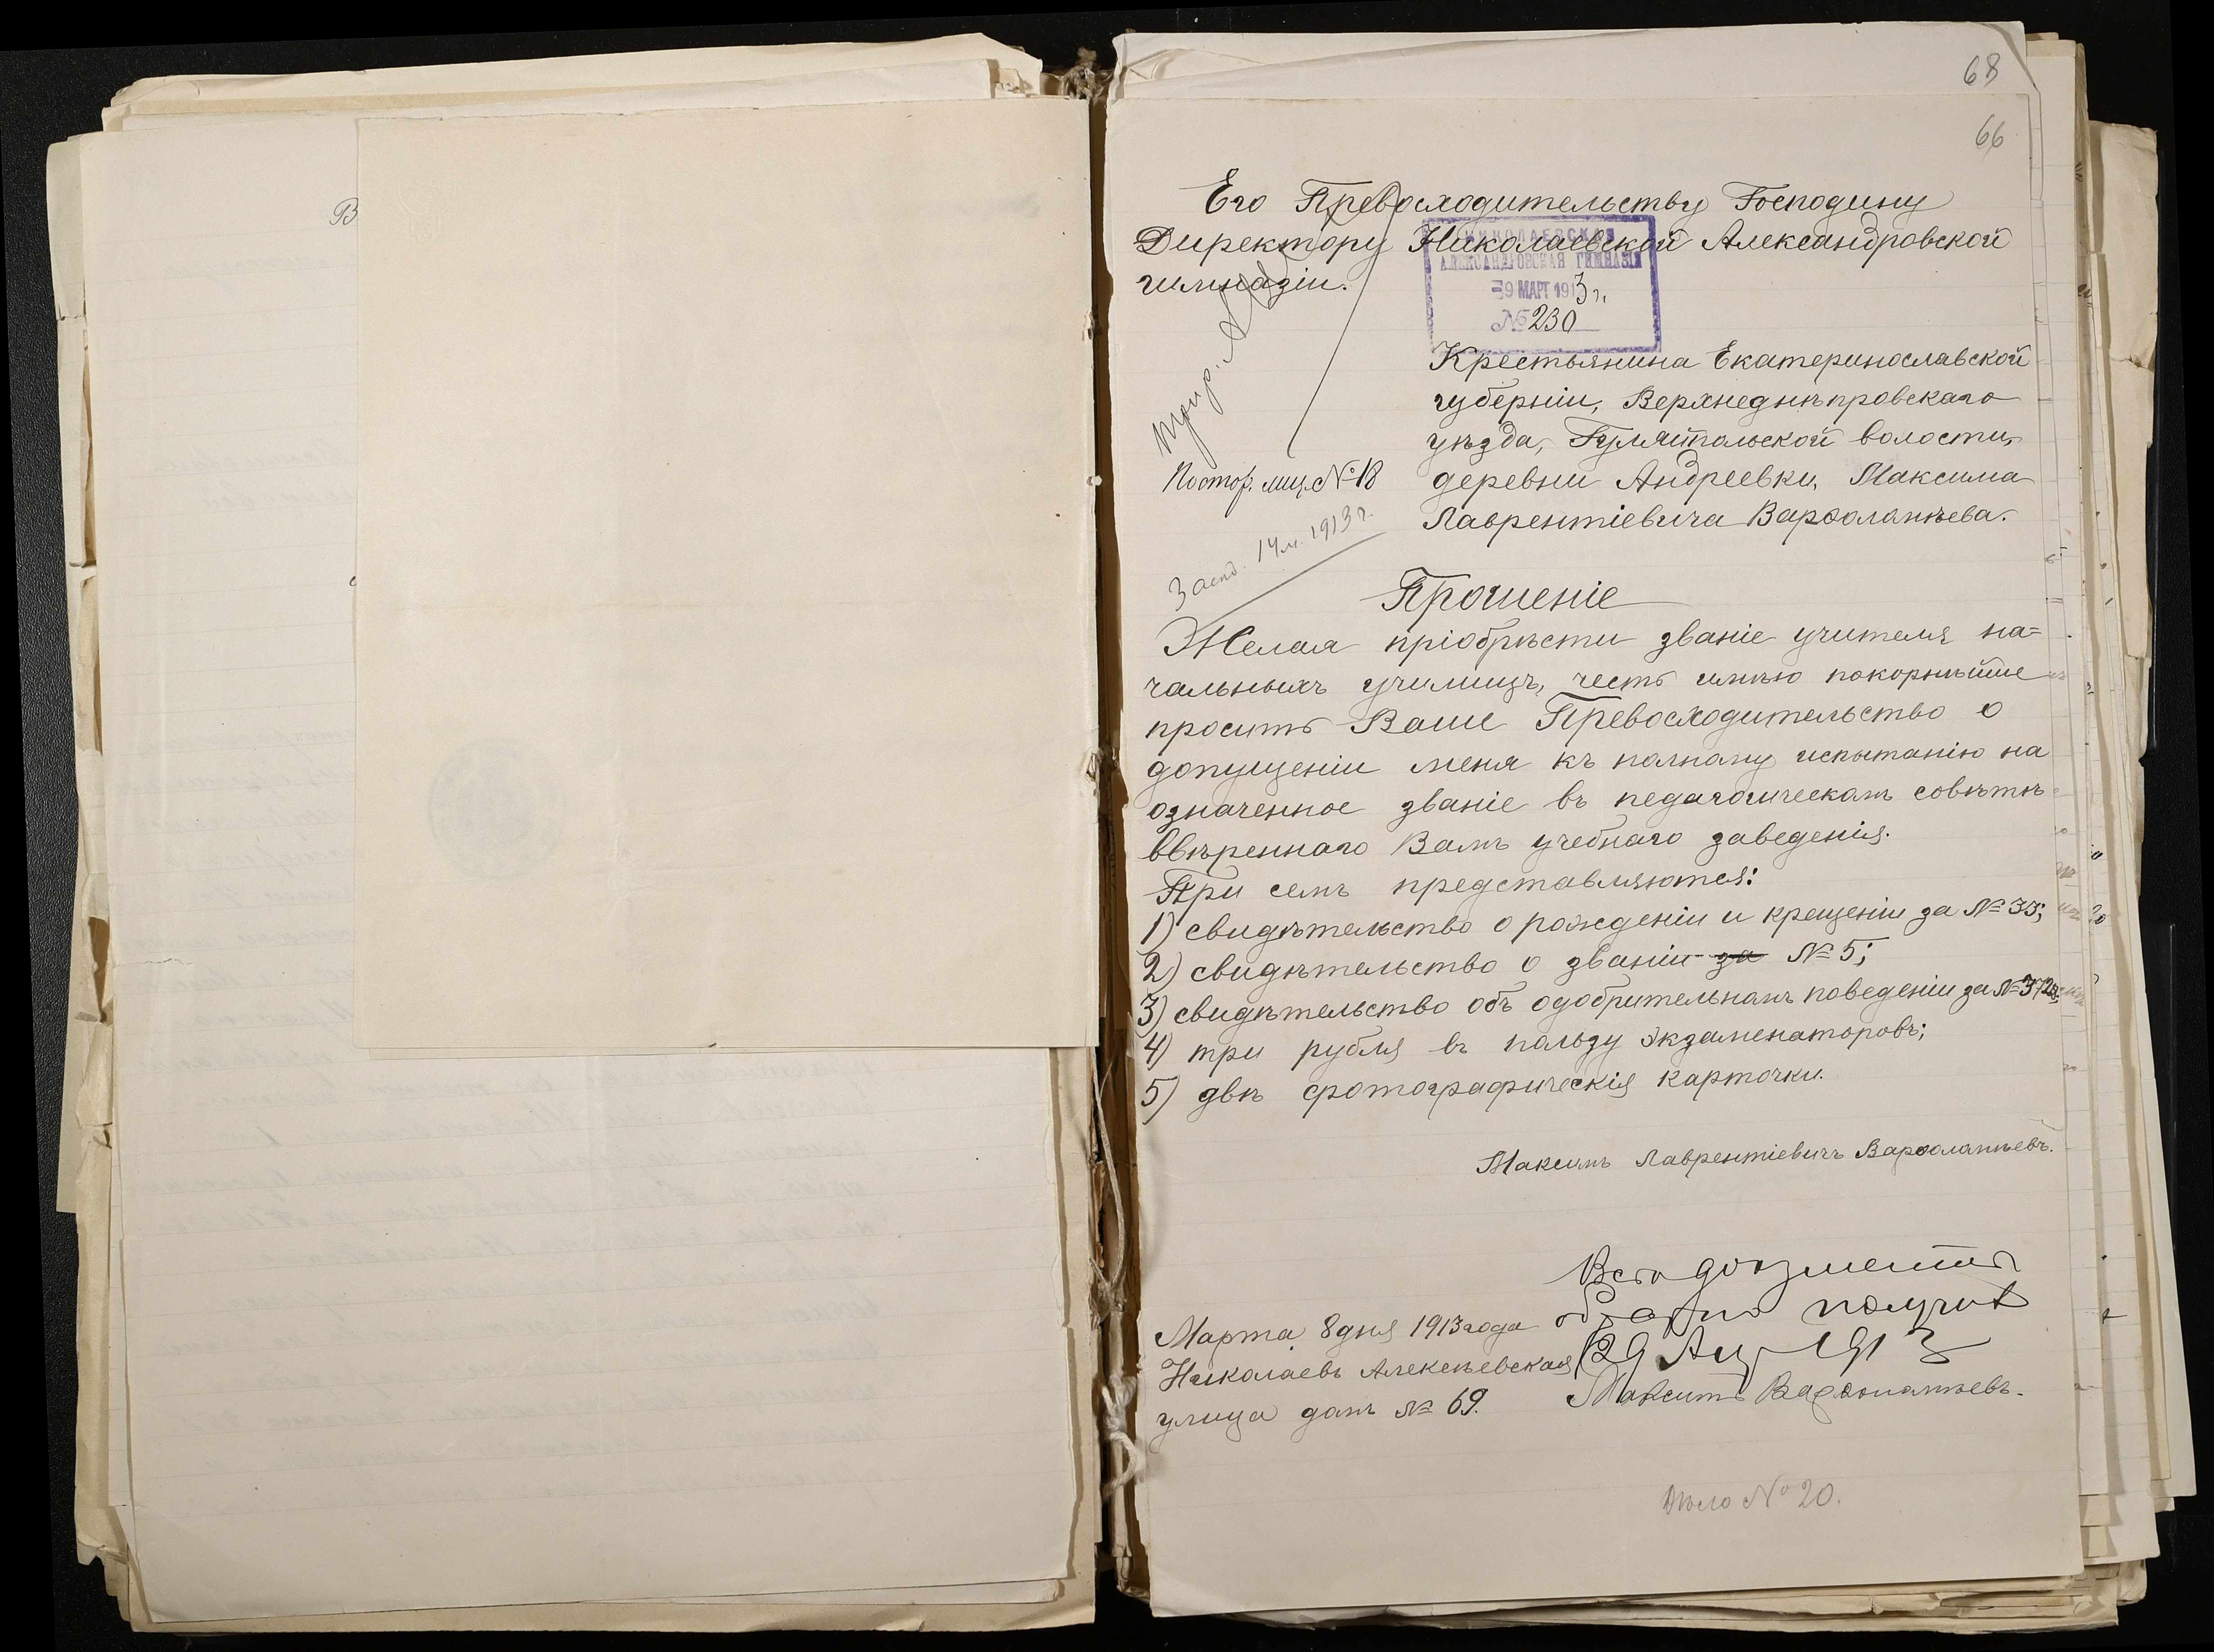 В
68
66
Его Превосходительству Господину
Директору Николаевской Александровской
гимназіи.
НИКОЛАЕВСКАЯ
АЛЕКСАНДРОВСКАЯ ГИМНАЗІЯ
9 МАРТ 1913 г.
№ 230
Крестьянина Екатеринославской
губерніи, Верхнеднѣпровскаго
уѣзда, Гуляйпольской волости,
деревни Андреевки, Максима
Лаврентіевича Варѳоламѣева.
Постор. лиц. № 18
14 м. 1913 г.
Прошеніе
Желая пріобрѣсти званіе учителя на=
чальныхъ училищъ, честь имѣю покорнѣйше
просить Ваше Превосходительство о
допущеніи меня къ полному испытанію на
означенное званіе въ педагогическомъ совѣтѣ
ввѣреннаго Вамъ учебнаго заведенія.
При семъ представляются:
1) свидѣтельство о рожденіи и крещеніи за № 35;
2) свидѣтельство о званіи за № 5;
3) свидѣтельство объ одобрительномъ поведеніи за № 3728;
4) три рубля въ пользу экзаменаторовъ;
5) двѣ фотографическія карточки.
Максимъ Лаврентіевичъ Варѳоламѣевъ.
Марта 8 дня 1913 года
Николаевъ Алексѣевская
улица домъ № 69.
Всѣ документы
обратно получилъ
29 Апр 1913
Максимъ Варѳоламѣевъ.
Дѣло № 20.